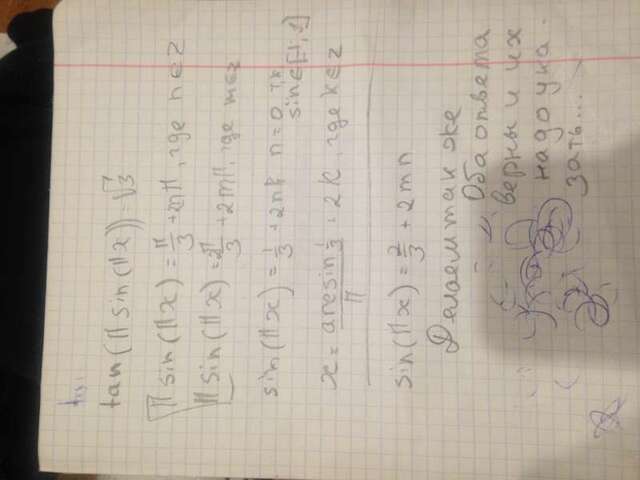 tan(π sin(πx)) = √3
π sin(πx) = π/3 + πn, где n ∈ Z
π sin(πx) = 2π/3 + 2mπ, где m ∈ Z
sin(πx) = 1/3 + 2n n = 0 т.к
sin ∈ [-1, 1]
x = arcsin 1/3 / π + 2k, где k ∈ Z
sin(πx) = 2/3 + 2mn
Делаем так же
Оба ответа
верны и их
надо ука-
зать...